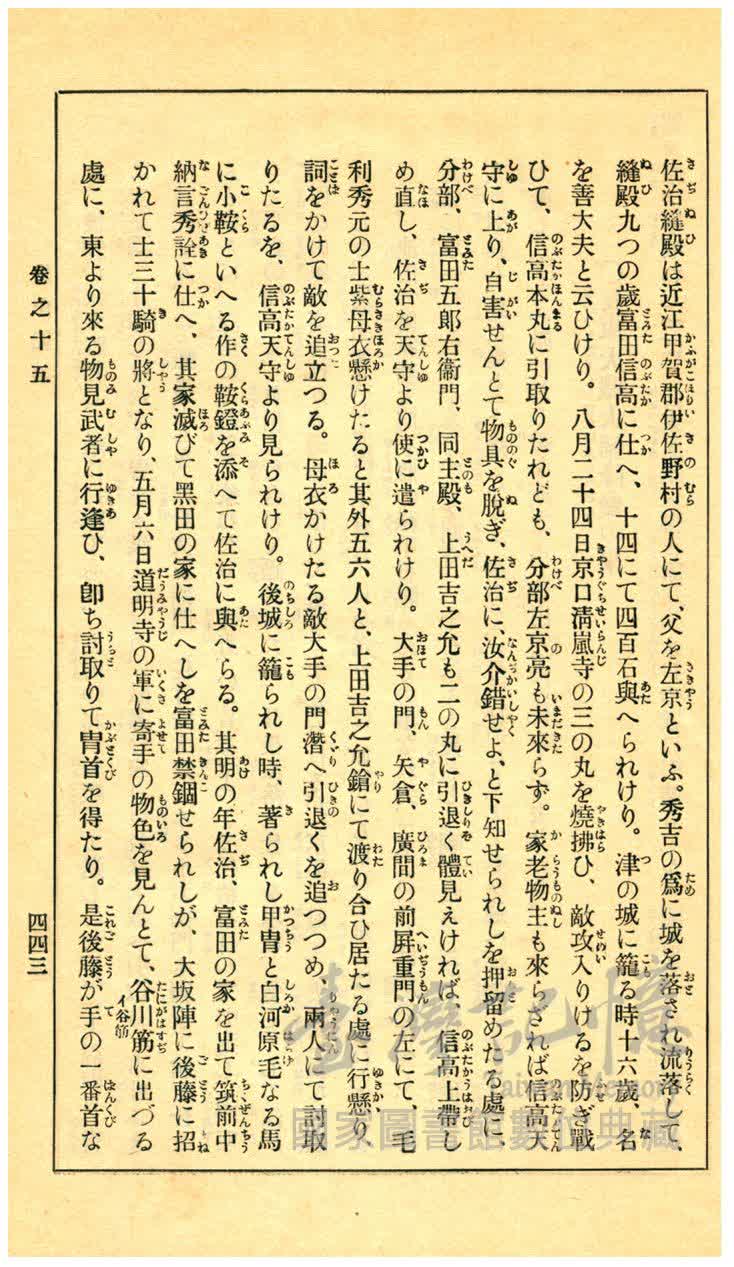 佐治縫殿は近江甲賀郡伊佐野村の人にて、父を左京といふ。秀吉の爲に城を落され流落して、
縫殿九つの歲富田信高に仕へ、十四にて四百石與へられけり。津の城に籠る時十六歲、名
を善大夫と云ひけり。八月二十四日京口淸嵐寺の三の丸を燒拂ひ、敵攻入りけるを防ぎ戰
ひて、信高本丸に引取りたれども、分部左京亮も未來らず。家老物主も來らざれば信高天
守に上り、自害せんとて物具を脫ぎ、佐治に、汝介錯せよ、と下知せられしを押留めたる處に、
分部、富田五郎右衞門、同主殿、上田吉之允も二の丸に引退く體見えければ、信高上帶し
め直し、佐治を天守より使に遣られけり。大手の門、矢倉、廣間の前屛重門の左にて、毛
利秀元の士紫母衣懸けたると其外五六人と、上田吉之允鎗にて渡り合ひ居たる處に行懸り
詞をかけて敵を追立つる。母衣かけたる敵大手の門潛へ引退くを追つつめ、兩人にて討取
りたるを、信高天守より見られけり。後城に籠られし時、著られし甲冑と白河原毛なる馬
に小鞍といへる作の鞍鐙を添へて佐治に與へらる。其明の年佐治、富田の家を出て筑前中
納言秀詮に仕へ、其家滅びて黑田の家に仕へしを富田禁錮せられしが、大坂陣に後藤に招
かれて士三十騎の將となり、五月六日道明寺の軍に寄手の物色を見んとて、谷川筋に出づる
イ谷筋
處に、東より來る物見武者に行逢ひ、卽ち討取りて冑首を得たり。是後藤が手の一番首な
卷之十五
四四三
臺灣記憶
國家圖書館數位典藏